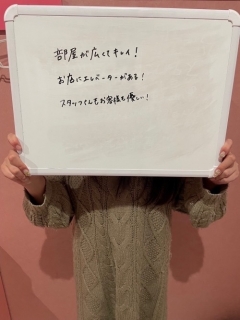 部屋が広くてキレイ!
お店にエレベーターがある!
スタッフさんもお客様も優しい!